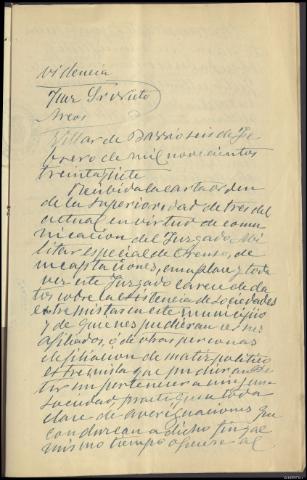 videncia
Juez Sr
Areos
Villar de Barrio seis de Fe
brero de mil novecientos
treinta siete
Recibida la carta orden
de la superioridad de tres del
actual en virtud de comu
nicación del Juzgado Mi
litar especial de Orense, de
incautaciones, y toda
vez este Juzgado carece de da
tos sobre la existencia de sociedades
extremistas en este municipio
y de quienes pudieran ser
afiliados, ó de otras personas
de filiacion de matiz politico
extremista que pudieran
sin pertenecer a ninguna
sociedad practiquense toda
clase de averiguaciones que
conduzcan a dicho fin, y al
mismo tiempo al